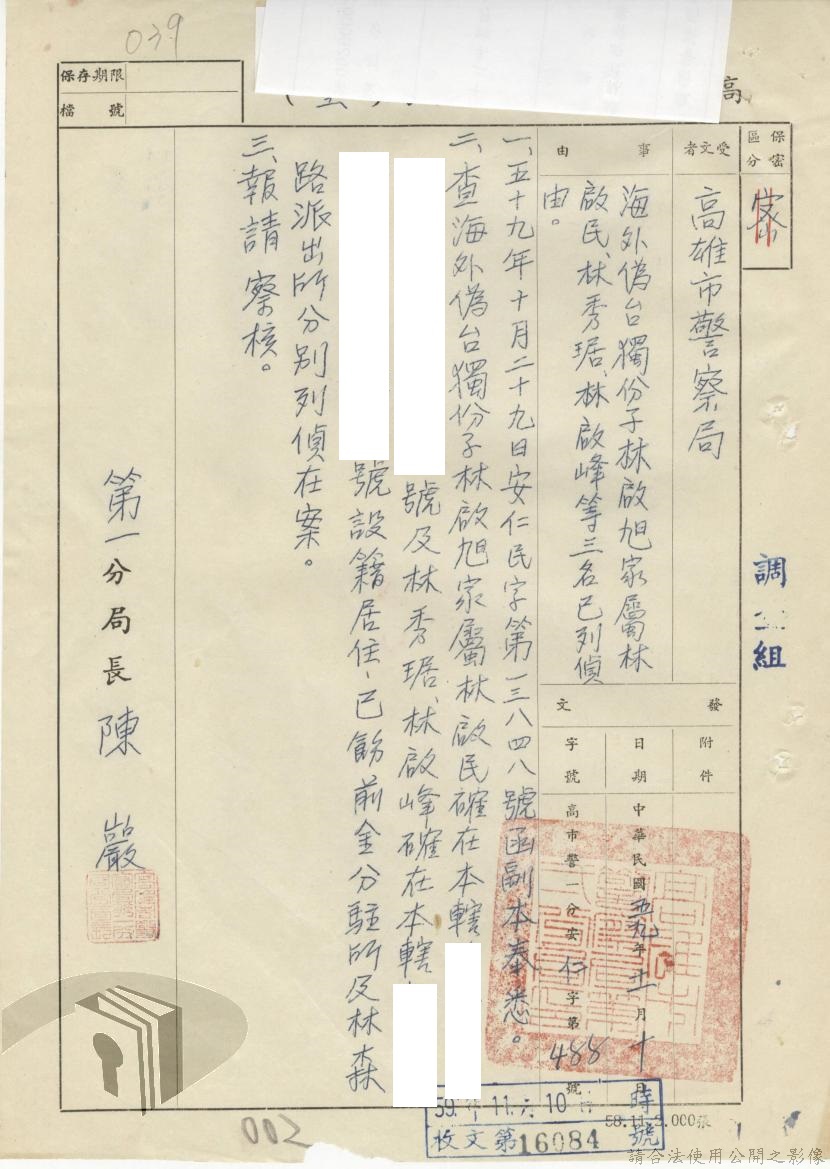 039
保存期限
檔號
高
保密
區分
密
受文者
高雄市警察局
事由
海外偽台獨份子林啟旭家屬林
啟民、林秀琚、林啟峰等三名已列偵
由。
發文
附件
日期
中華民國五九年十一月十日
字號
高市警一分安仁字第488號
一、五十九年十月二十九日安仁民字第一三八四八號函副本奉悉。
二、查海外偽台獨份子林啟旭家屬林啟民確在本轄
號及林秀琚、林啟峰確在本轄
號設籍居住,已飭前金分駐所及林森
路派出所分別列偵在案。
三、報請 察核。
第一分局長 陳 巖
調
組
59.年11.月10
時
收文第16084號
58.11.3.000張
002
請合法使用公開之影像